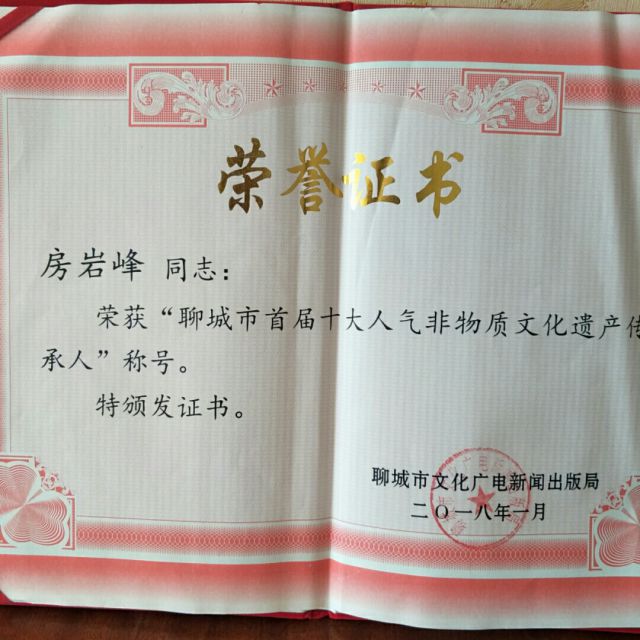 荣誉证书
房岩峰 同志：
荣获“聊城市首届十大人气非物质文化遗产传
承人”称号。
特颁发证书。
聊城市文化广电新闻出版局
二〇一八年一月